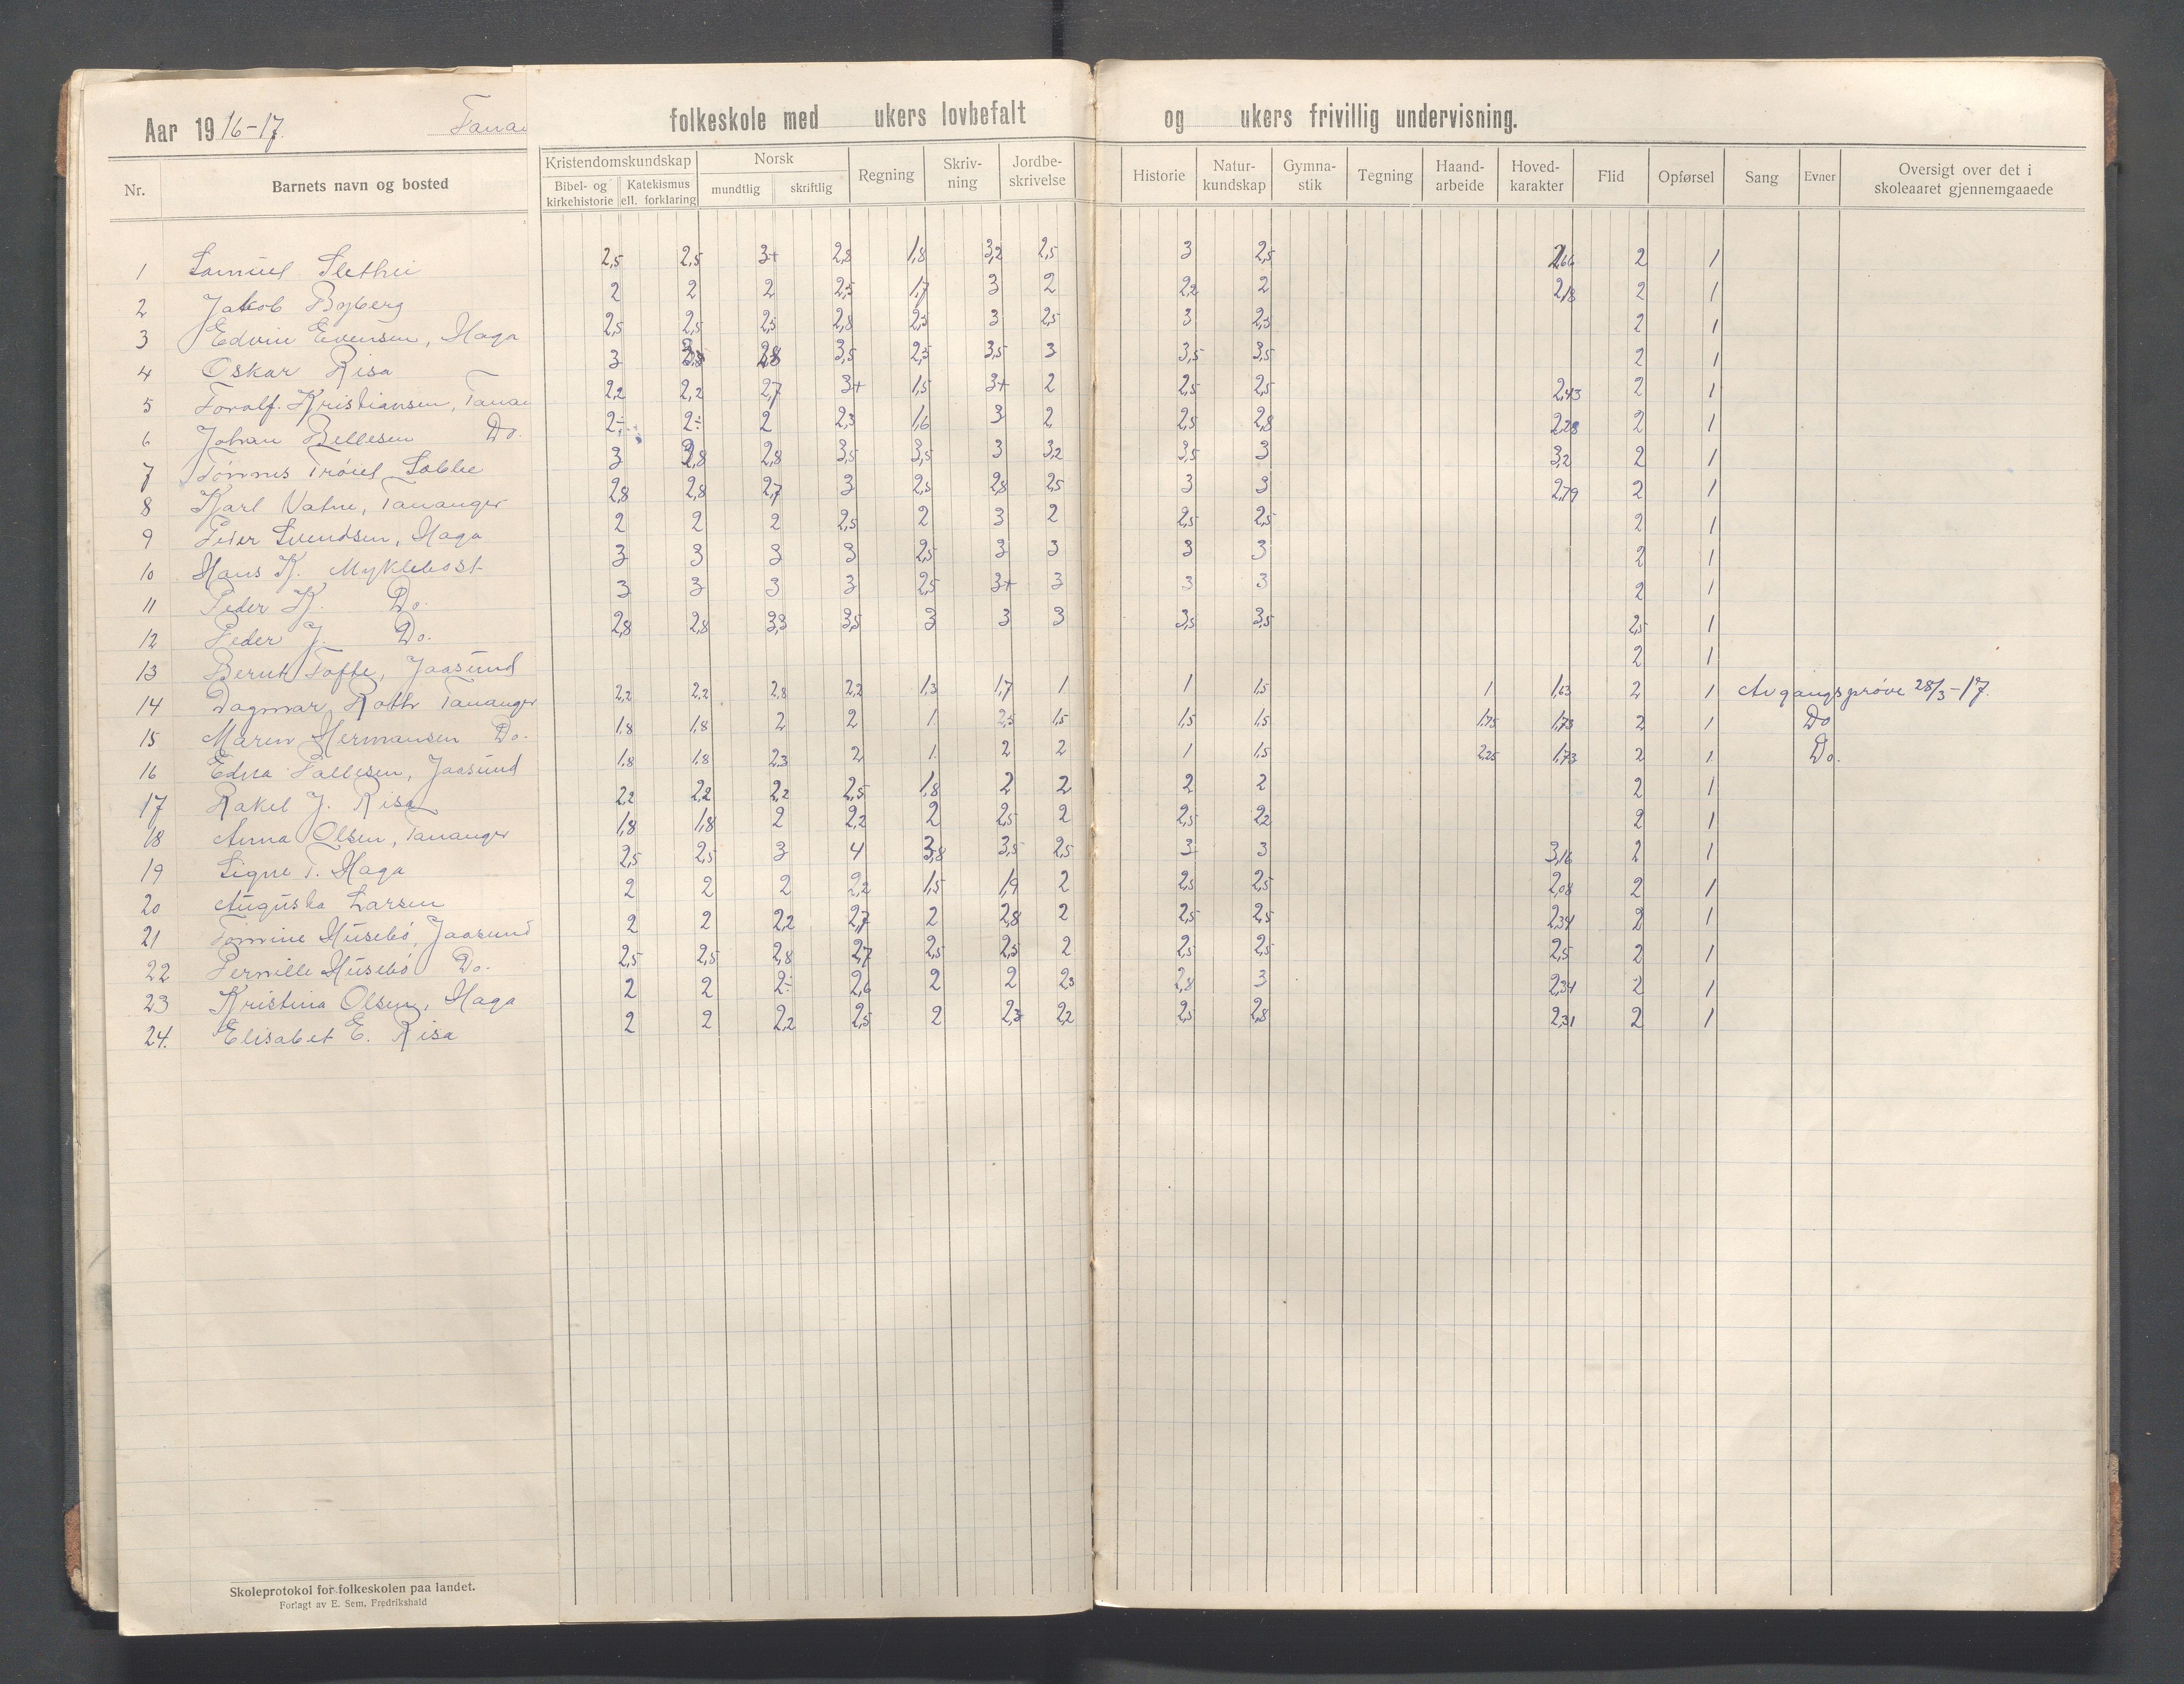 Aar 1916-17. Tanan folkeskole med ukers lovbefalt og ukers frivillig undervisning.
Nr. Barnets navn og bosted Kristendomskundskap Bibel- og kirkehistorie Katekismus ell. forklaring Norsk mundtlig skriftlig Regning Skriv-ning Jordbe-skrivelse Historie Natur-kundskap Gymna-stik Tegning Haand-arbeide Hoved-karakter Flid Opførsel Sang Evner Oversigt over det i skoleaaret gjennemgaaede
1 Samuel Slethei 2,5 2,5 3+ 2,8 1,8 3,2 2,5 3 2,5 2,66 2 1
2 Jakob Byberg 2 2 2 2,5 1,7 3 2 2,2 2 2,18 2 1
3 Edvin Evensen, Haga 2,5 2,5 2,5 2,8 2,3 3 2,5 3 2,3 2 1
4 Oskar Risa 3 2,8 3,5 2,5 3,5 3 3,5 3,5 2 1
5 Toralf Kristiansen, Tanan 2,2 2,2 2,7 3+ 1,5 3+ 2 2,5 2,5 2,43 2 1
6 Johan Do. 2÷ 2÷ 2 2,3 1,6 3 2 2,5 2,8 2,28 2 1
7 Tønnes 3 2,8 2,8 3,5 3,5 3 3,2 3,5 3 3,2 2 1
8 Karl Vatne, Tananger 2,8 2,8 2,7 3 2,5 2,8 2,5 3 3 2,79 2 1
9 Peder Svendsen, Haga 2 2 2 2,5 2 3 2 2,5 2,5 2 1
10 Hans K. Myklebost 3 3 3 3 2,5 3 3 3 3 2 1
11 Peder K. Do. 3 3 3 3 2,5 3+ 3 3 3 2 1
12 Peder J. Do. 2,8 2,8 3,3 3,5 3 3 3 3,5 3,5 2,5 1
13 Bernt Tofte, Jaasund 2 1
14 Dagmar Roth Tananger 2,2 2,2 2,8 2,2 1,3 1,7 1 1 1,5 1 1,63 2 1 Avgangsprøve 28/3-17.
15 Maren Hermansen Do. 1,8 1,8 2 2 1 2,5 1,5 1,5 1,5 1,75 1,73 2 1 Do
16 Edna Pallesen, Jaasund 1,8 1,8 2,3 2 1. 2 2 1 1,5 2,25 1,73 2 1 Do.
17 Rakel J. Risa 2,2 2,2 2,2 2,5 1,8 2 2 2 2 2 1
18 Anna Olsen, Tananger 1,8 1,8 2 2,2 2 2,5 2 2,5 2,2 2 1
19 Signe T. Haga 2,5 2,5 3 4 3,8 3,5 2,5 3 3 3,16 2 1
20 Augusta Larsen 2 2 2 2,2 1,5 1,9 2 2,5 2,5 2,08 2 1
21 Tomine Husebø, Jaasund 2 2 2,2 2,7 2 2,8 2 2,5 2,5 2,34 2 1
22 Pernille Husebø Do. 2,5 2,5 2,8 2,7 2,5 2,5 2 2,5 2,5 2,5 2 1
23 Kristina Olsen, Haga 2 2 2÷ 2,6 2 2 2,3 2,8 3 2,34 2 1
24. Elisabet E. Risa 2 2 2,2 2,5 2 2,3 2,2 2,5 2,8 2,31 2 1
Skoleprotokol for folkeskolen paa landet.
Forlagt av E. Sem, Fredrikshald